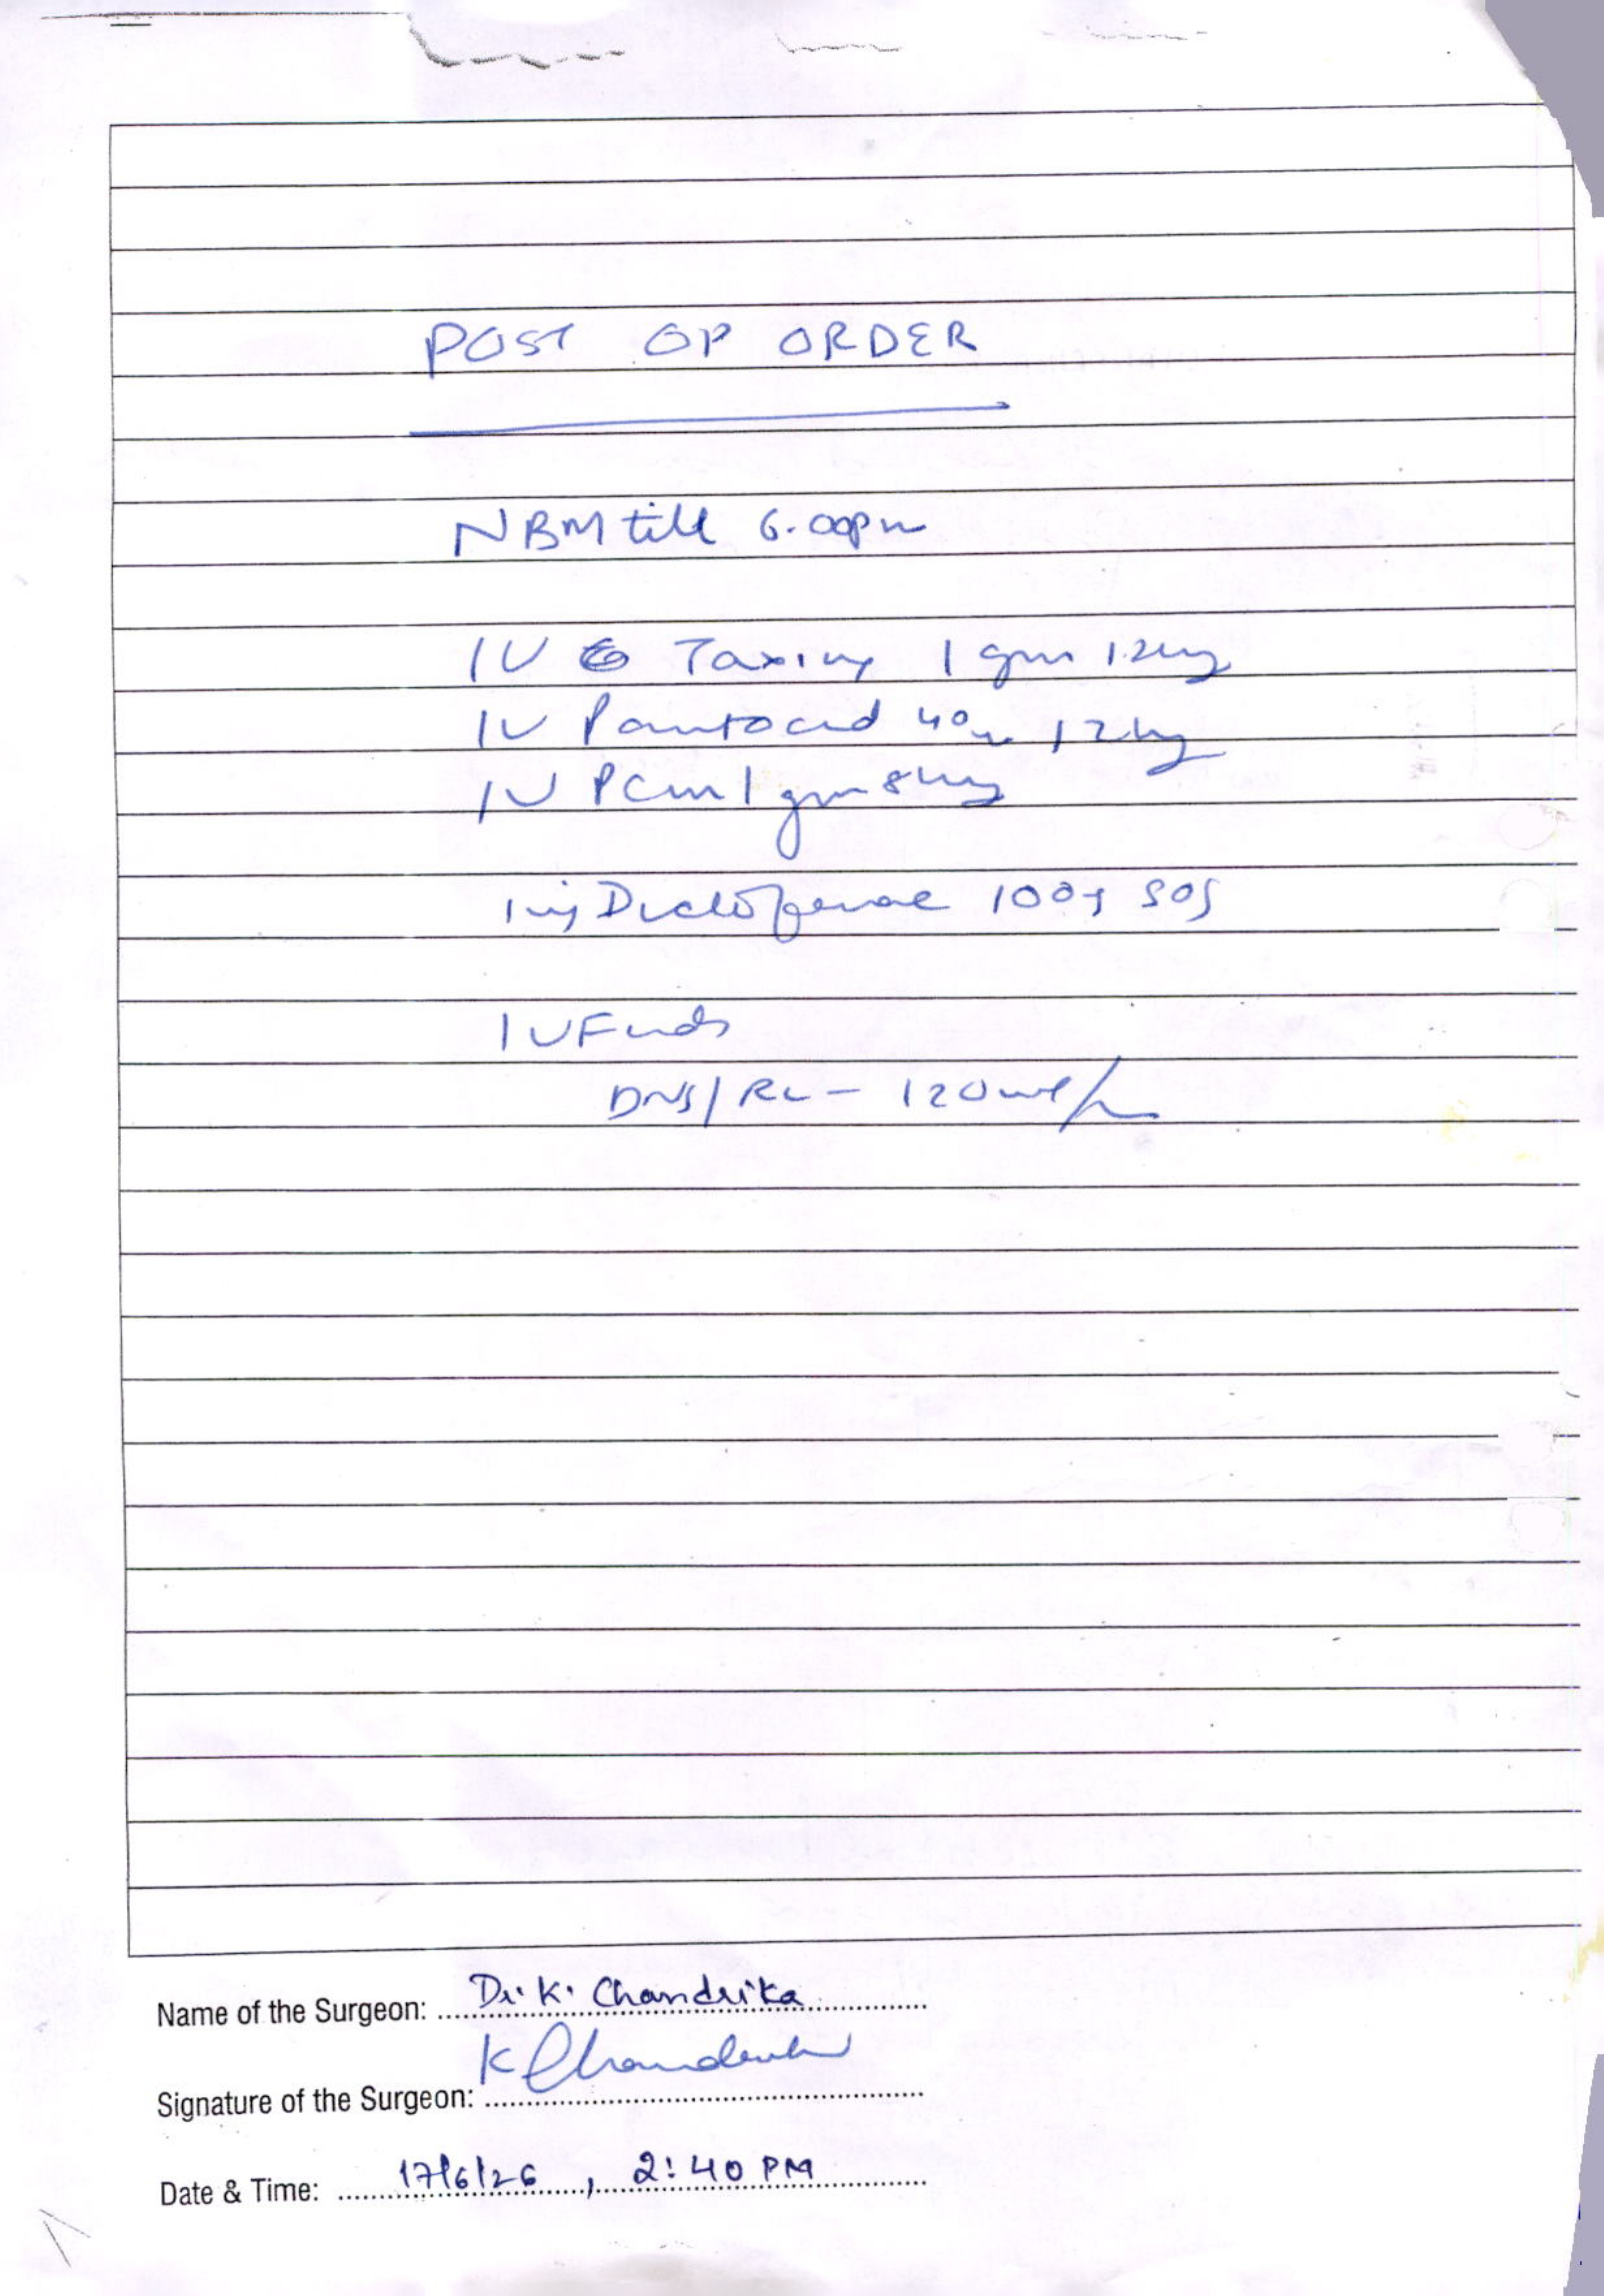 POST OP ORDER
NBM till 6.00pm
IV Taxim 1 gm 12hrly
IV Pantocid 40mg 12hrly
IV PCM 1 gm 8hrly
inj Diclofenac 100 SOS
IV Fluids
DNS/RL - 120ml/hr
Name of the Surgeon: Dr. K. Chandrika
Signature of the Surgeon: K Chandrika
Date & Time: 17/6/26, 2:40 PM